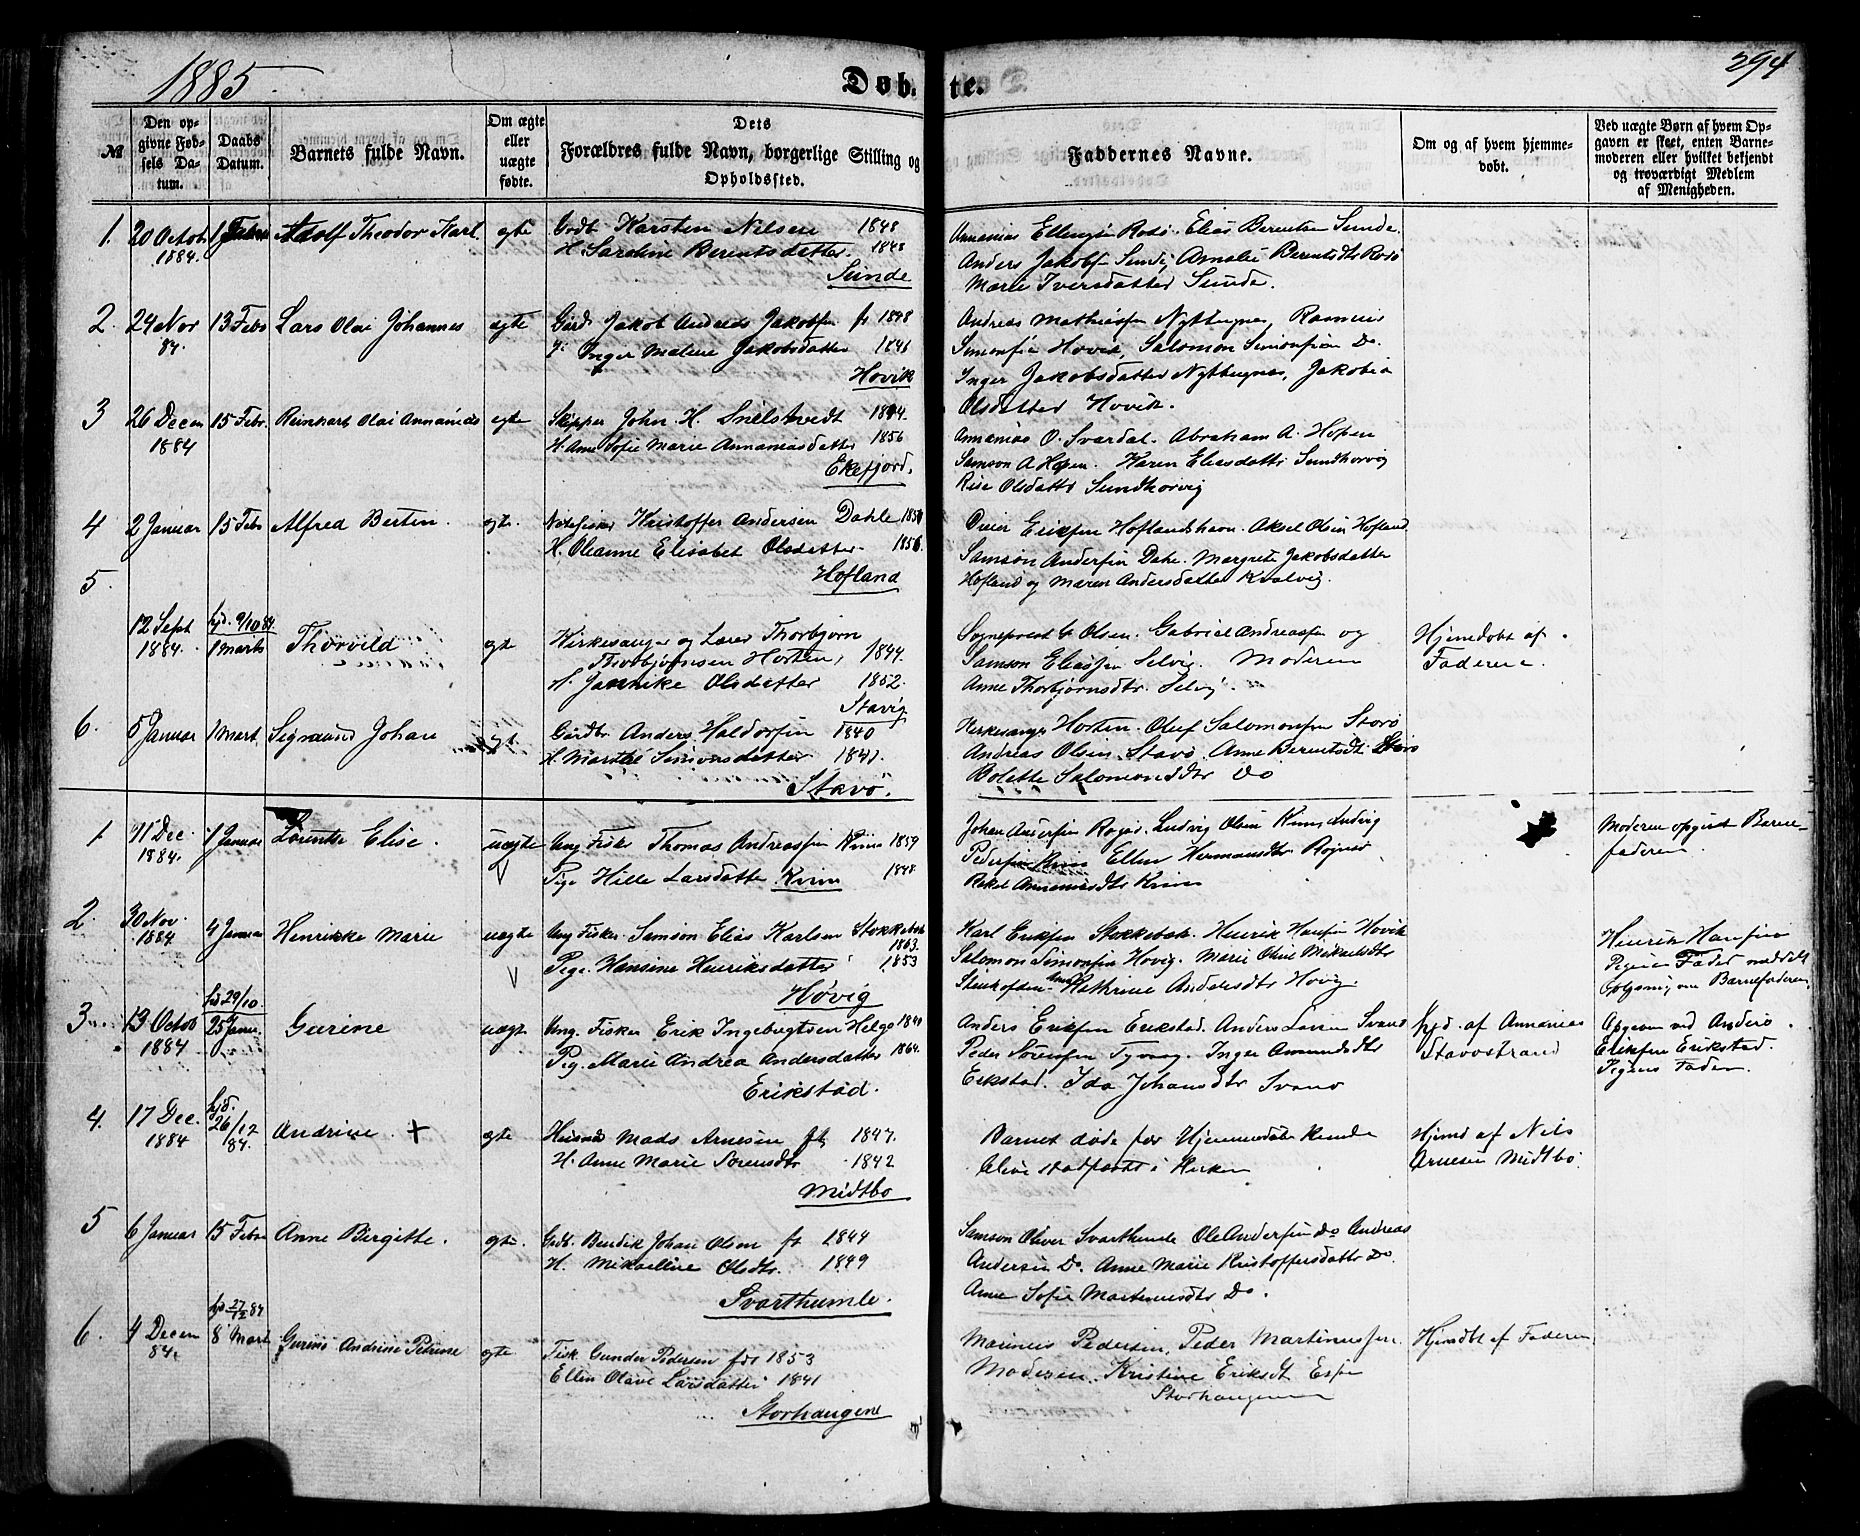 1885
Døbte.
294
№
Den opgivne Fødsels Datum.
Daabs Datum.
Barnets fulde Navn.
Om ægte eller uægte fødte.
Dets Forældres fulde Navn, borgerlige Stilling og Opholdssted.
Faddernes Navne.
Om og af hvem hjemmedøbt.
Ved uægte Børn af hvem Opgaven er skeet, enten Barnemoderen eller hvilket bekjendt og troværdigt Medlem af Menigheden.
1. 20 Octob 1884. Adolf Theodor Karl egte
Grdb. Karsten Nilsen 1848
H. Caroline Berentsdatter 1848
Sunde
Annanias Ellingsen Rodø. Elias Berentsen Sunde.
Anders Jakobsen Sunde, Amalie Berentsdtr Rodø
Marie Iversdatter Sunde.
2. 24 Nov 84. 13 Febr Lars Olai Johannes egte
Gårdb. Jakob Andreas Jakobsen f. 1848
Inger Malene Jakobsdatter 1846
Hovik
Andreas Mathiassen Nyttugnes, Rasmus
Simonsen Hovik, Salomon Simonsen Do.
Inger Jakobsdatter Nyttugnes, Jakobia
Olsdatter Hovik.
3 26 Decem 1884 15 Febr. Reinhart Olai Annanias egte
Skipper John H. Snelstvedt 1844.
H. Anne Sofie Marie Annaniasdatter 1856
Ekefjord.
Annanias O. Svardal. Abraham A. Hopen
Samson A. Hopen. Karen Eliasdattr Sundhorvig
Rise Olsdattr Sundhorvig
4 2 Januar 15 Febr Alfred Berten. egte.
Kristoffer Andersen Dahle
H. Oleanne Elisabet Olsdatter 1856.
Hofland
Peier Eriksen Hoflandshavn. Aksel Olsen Hofland
Samson Andersen Dahe. Margrete Jakobsdatter
Hofland og Maren Andersdatter Kvalvig.
5. 12 Sept 1884. hjd. 9/10 84. 1 Marts Thorvild egte
Kirkesanger og Lærer Thorbjørn
Thorbjørnsen Horten, 1844.
H. Jannike Olsdatter 1852.
Stavig
Sogneprest C. Olsen. Gabriel Andreassen og
Samson Eliassen Selvig. Moderen
Anne Thorbjørnsdtr. Selvig.
Hjemedøbt af Faderen.
6. 5 Januar 1 Mart. Sigmund Johan egt.
Gårdbr. Anders Haldorsen 1840
H. Marthe Simonsdatter 1841.
Stavø.
Kirkesangr Horten. Oluf Salomonsen Storø
Andreas Olsen Stavø. Anne Berentsdt. Storø
Bolette Salomonsdtr Do
1 11 Dec. 1884. 1 Januar Lourentse Elise. uægte
Ung. Fisk. Thomas Andreassen Kinn 1859
Pige Hille Larsdatte Kinn 1848.
Johan Andersen Rognø. Ludvig Olsen Kinn, Ludvig
Pedersen Kinn Ellen Hermansdtr Rognø
Rakel Annaniasdtr Kinn
Moderen opgivet Barnefaderen.
2. 30 Nov. 1884 4 Januar Henrikke Marie uægte
Ung Fisker Samson Elias Karlsen Stokkebøk 1863.
Pige Hansine Henriksdatter 1853
Høvig
Karl Eriksen Stokkebøk. Henrik Hansen Høvik
Salomon Simonsen Hovig. Marie Oline Mikkelsdtr
Kathrine Andersdtr Hovig
Henrik Hansen
Pigens Fader meddelt
Oplysning om Barnefaderen
3 13 Octob 1884 hjd 29/10. 25 Januar. Gurine uægte
Ung. Fisker Erik Ingebrigtsen Helgø
Pig. Marie Andrea Andersdatter 1864.
Erikstad.
Anders Eriksen Erikstad. Anders Larsen Svanø
Peder Sørensen Tyvaag. Inger Amundsdtr
Erikstad. Ida Johansdtr Svanø
hjd. af Annanias Stavøstrand
Opgiven ved Anders
Eriksen Erikstad.
Pigens Fader.
4. 17 Dec. 1884 hjd. 26/12 84. Andrine. + egte
Husmd Mads Arnesen f. 1847.
H. Anne Marie Sørensdtr 1842
Midtbø
Barnet døde før Hjemmedåben kunde
blive stadfæstet i Kirken
Hjemd af Nils Arnesen Midtbø.
5 6 Januar 15 Febr. Anne Birgitte. egte.
Grdb. Bendik Johan Olsen f. 1844
H. Mikaeline Olsdtr. 1849
Svarthumle.
Samson Oliver Svarthumle Ole Andersen Do Andreas
Andersen Do. Anne Marie Kristoffersdattr Do
Anne Sofie Martinusdtr Do.
6. 4 Decem 84. 8 Mart Gurine Andrine Petrine egte
Fisk. Gunder Pedersen fdt 1853
Ellen Olave Larsdatter 1841
Storhaugene
Marinus Pedersen, Peder Martinussen
Moderen. Kristine Eriksdt Espe
Storhaugene
Hjemdbt af Faderen